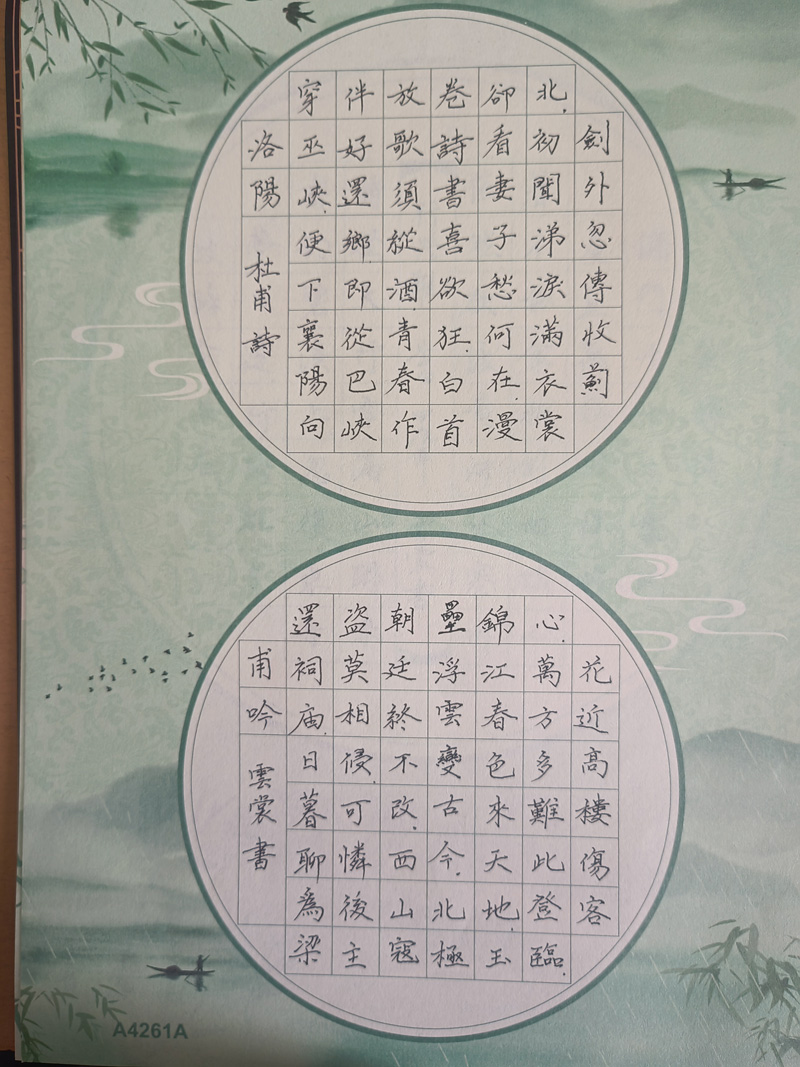 劍外忽傳收薊
北初聞涕淚滿衣裳
卻看妻子愁何在漫
卷詩書喜欲狂白首
放歌須縱酒青春作
伴好還鄉即從巴峽
穿巫峽便下襄陽向
洛陽 杜甫詩
花近高樓傷客
心萬方多難此登臨
錦江春色來天地玉
壘浮雲變古今北極
朝廷終不改西山寇
盜莫相侵可憐後主
還祠庙日暮聊為梁
甫吟 雲裳書
A4261A